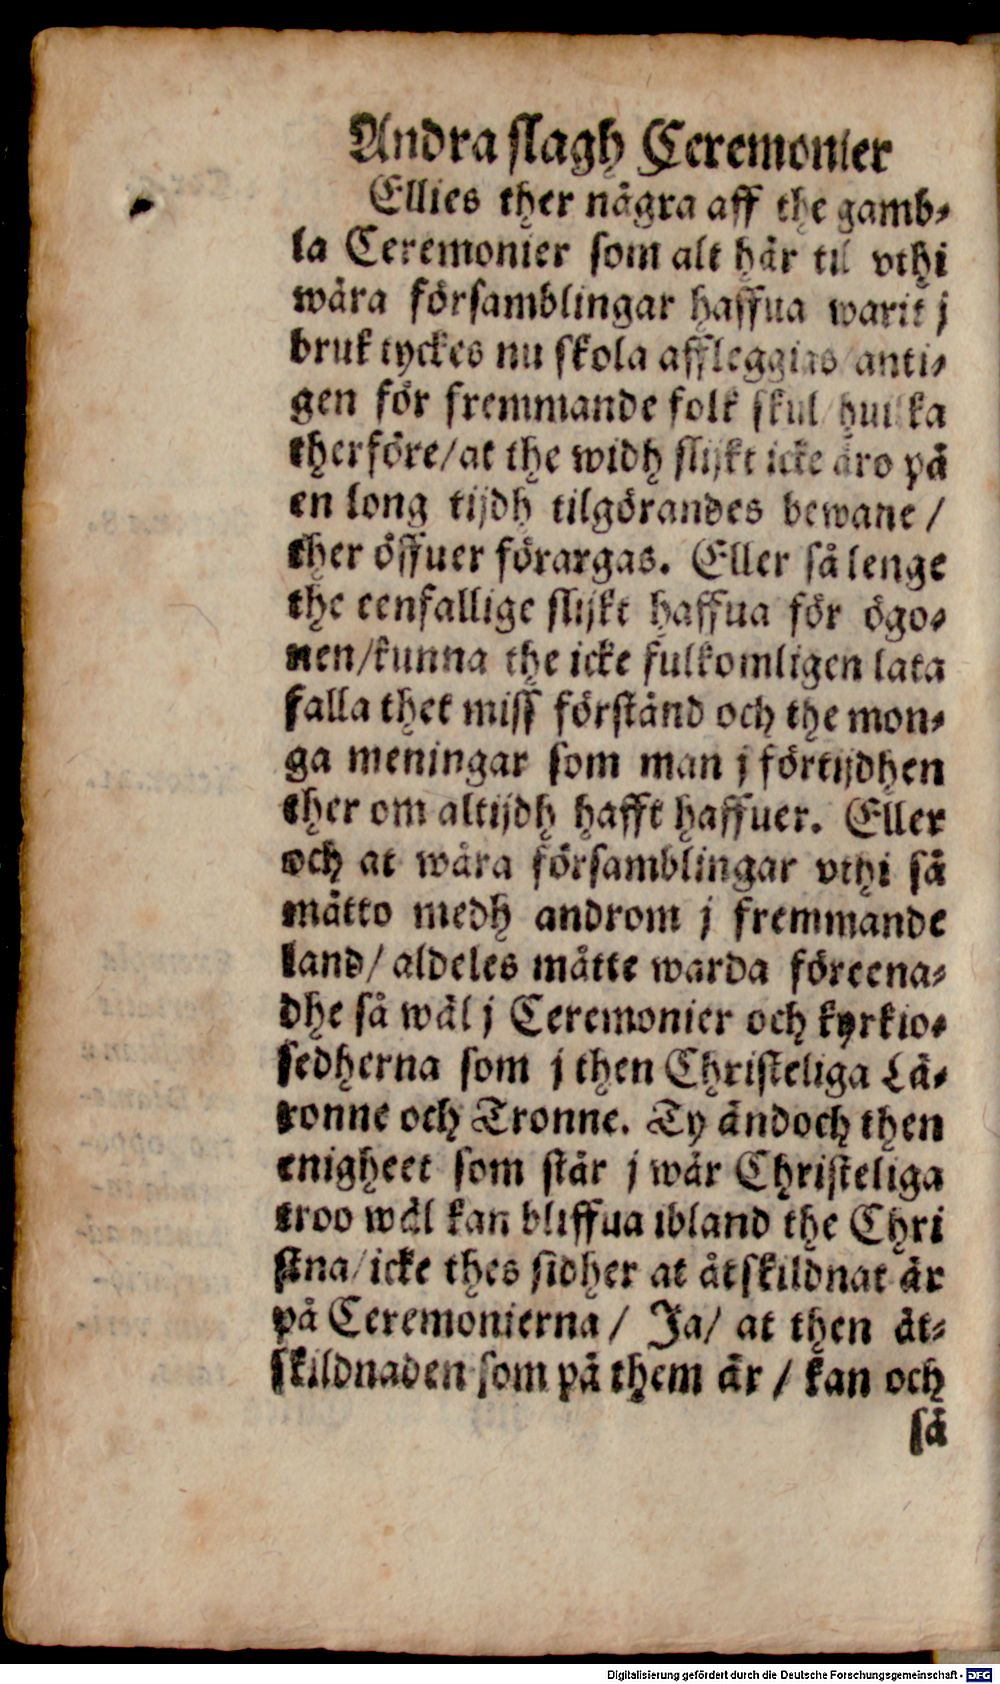 Andra slagh Ceremonier
Ellies ther några aff the gamb⸗
la Ceremonier som alt här til vthi
wåra församblingar haffua warit j
bruk tyckes nu skola affleggias/anti⸗
gen för fremmande folk skul/huilka
therföre/at the widh slijkt icke äro på
en long tijdh tilgörandes bewane/
ther öffuer förargas. Eller så lenge
the eenfallige slijkt haffua för ögo⸗
nen/kunna the icke fulkomligen lata
falla thet misförstånd och the mon⸗
ga meningar som man j förtijdhen
ther om altijdh hafft haffuer. Eller
och at wåra församblingar vthi så
måtto medh androm j fremmande
land/ aldeles måtte warda föreena⸗
dhe så wäl j Ceremonier och kyrkio⸗
sedherna som j then Christeliga Lä⸗
ronne och Tronne. Ty ändoch then
enigheet som står j wår Christeliga
troo wäl kan bliffua ibland the Chri
stna/icke thes sidher at åtskildnat är
på Ceremonierna/ Ja/ at then åt⸗
skildnaden som på them är / kan och
så
Digitalisierung gefördert durch die Deutsche Forschungsgemeinschaft - DFG